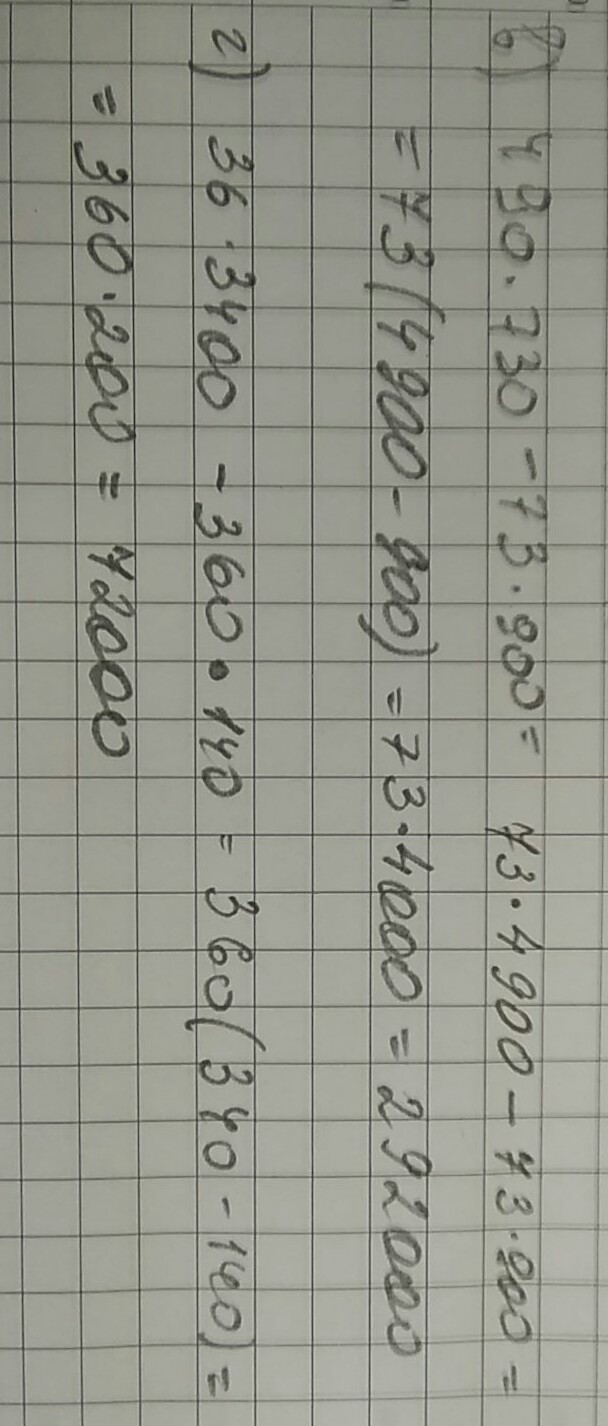 в) 490·730-73·900= 73·4900-73·900=
=73(4900-900)=73·4000=292000
г) 36·3400-360·140=360(340-140)=
=360·200=72000